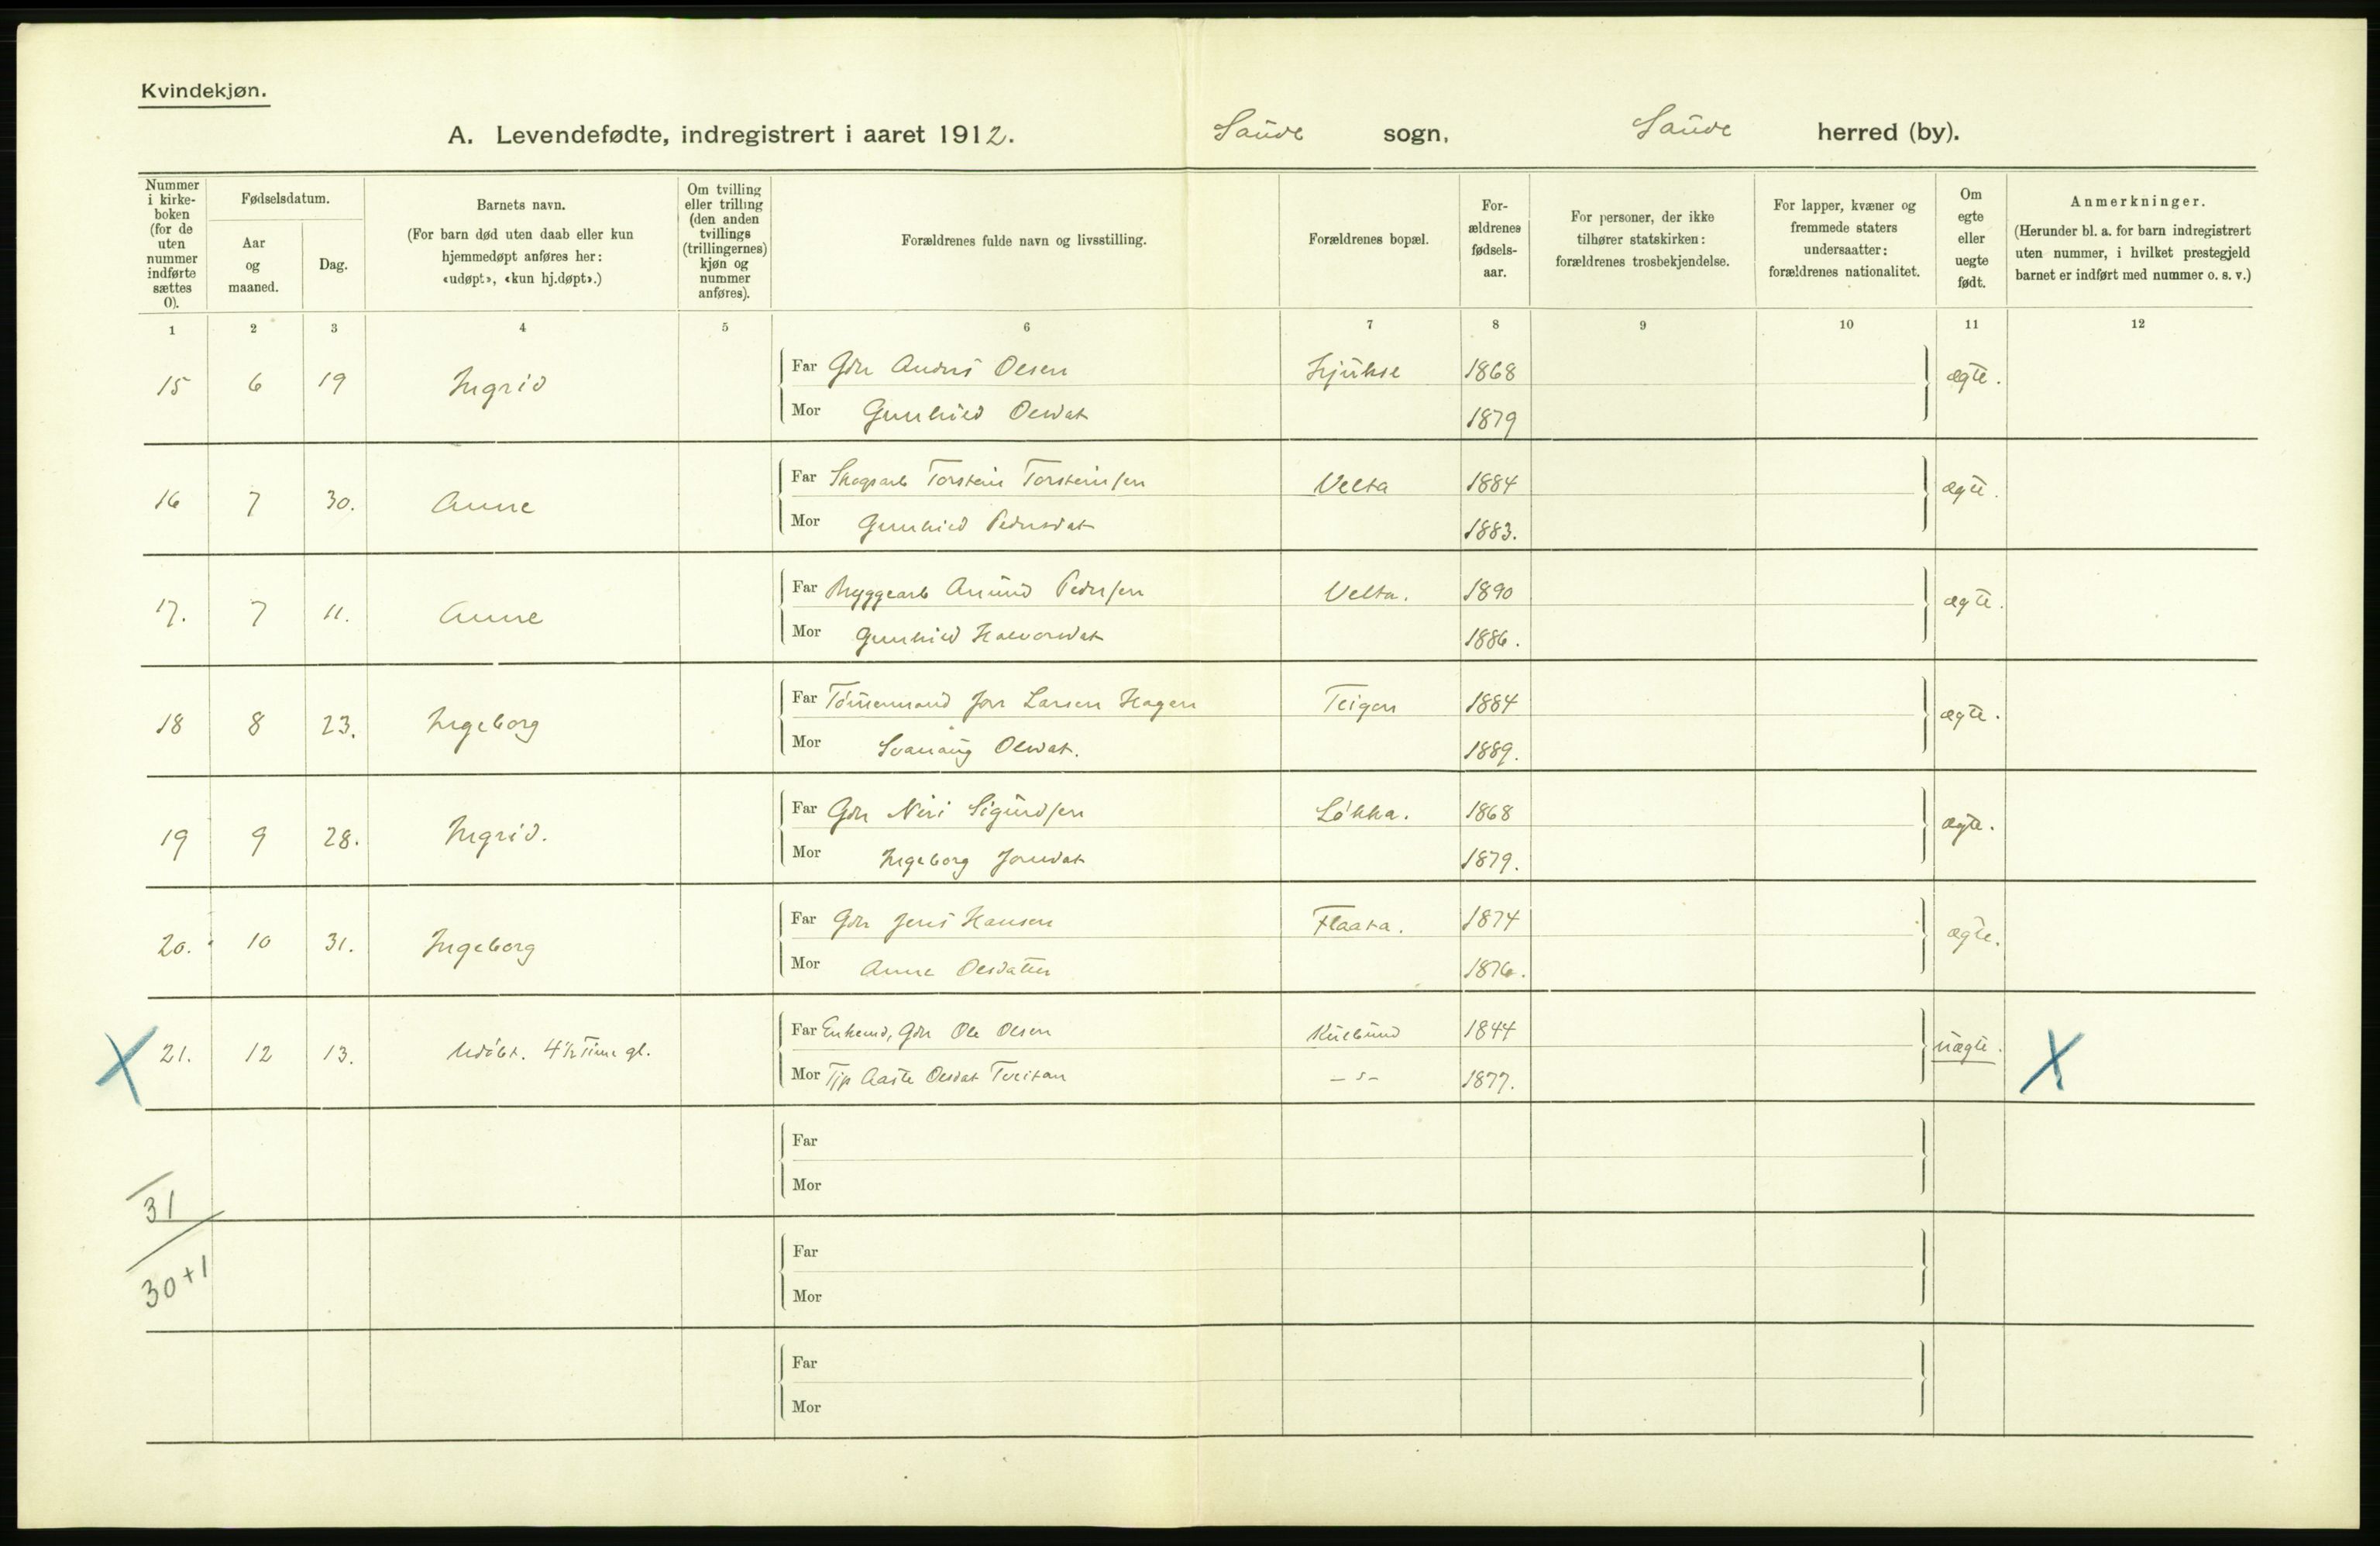 Kvindekjøn.
A. Levendefødte, indregistrert i aaret 1912. Saude sogn, Saude herred (by).
Nummer i kirkeboken (for de uten nummer indførte sættes 0).
Fødselsdatum.
Aar og maaned.
Dag.
Barnets navn.
(For barn død uten daab eller kun hjemmedøpt anføres her: «udøpt», «kun hj.døpt».)
Om tvilling eller trilling (den anden tvillings (trillingernes) kjøn og nummer anføres).
Forældrenes fulde navn og livsstilling.
Forældrenes bopæl.
Forældrenes fødselsaar.
For personer, der ikke tilhører statskirken: forældrenes trosbekjendelse.
For lapper, kvæner og fremmede staters undersaatter: forældrenes nationalitet.
Om egte eller uegte født.
Anmerkninger.
(Herunder bl. a. for barn indregistrert uten nummer, i hvilket prestegjeld barnet er indført med nummer o. s. v.)
1 2 3 4 5 6 7 8 9 10 11 12
15 6 19 Ingrid Far Gbr Anders Olsen Hjukse 1868 ægte.
Mor Gunhild Olsdat 1879
16 7 30. Anne Far Skogsarb Torstein Torsteinsen Velta 1884 ægte.
Mor Gunhild Pedersdat 1883.
17. 7 11. Anne Far Bryggearb Amund Pedersen Velta. 1890 ægte.
Mor Gunhild Halvorsdat 1886.
18 8 23. Ingeborg Far Tømmermand Jon Larsen Hagen Teigen 1884 ægte.
Mor Svanaug Olsdat. 1889.
19 9 28. Ingrid. Far Gbr Neri Sigurdsen Løkka. 1868 ægte.
Mor Ingeborg Jonsdat 1879.
20. 10 31. Ingeborg Far Gbr Jens Hansen Flaata. 1874 ægte.
Mor Anne Olsdatter 1876.
X 21. 12 13. Udøbt. 4½ Time gl. Far Enkemd, Gbr Ole Olsen 1844 uægte. X
Mor Tjp Aaste Olsdat Tveitan -"- 1877.
Far
Mor
31
Far
30+1
Mor
Far
Mor